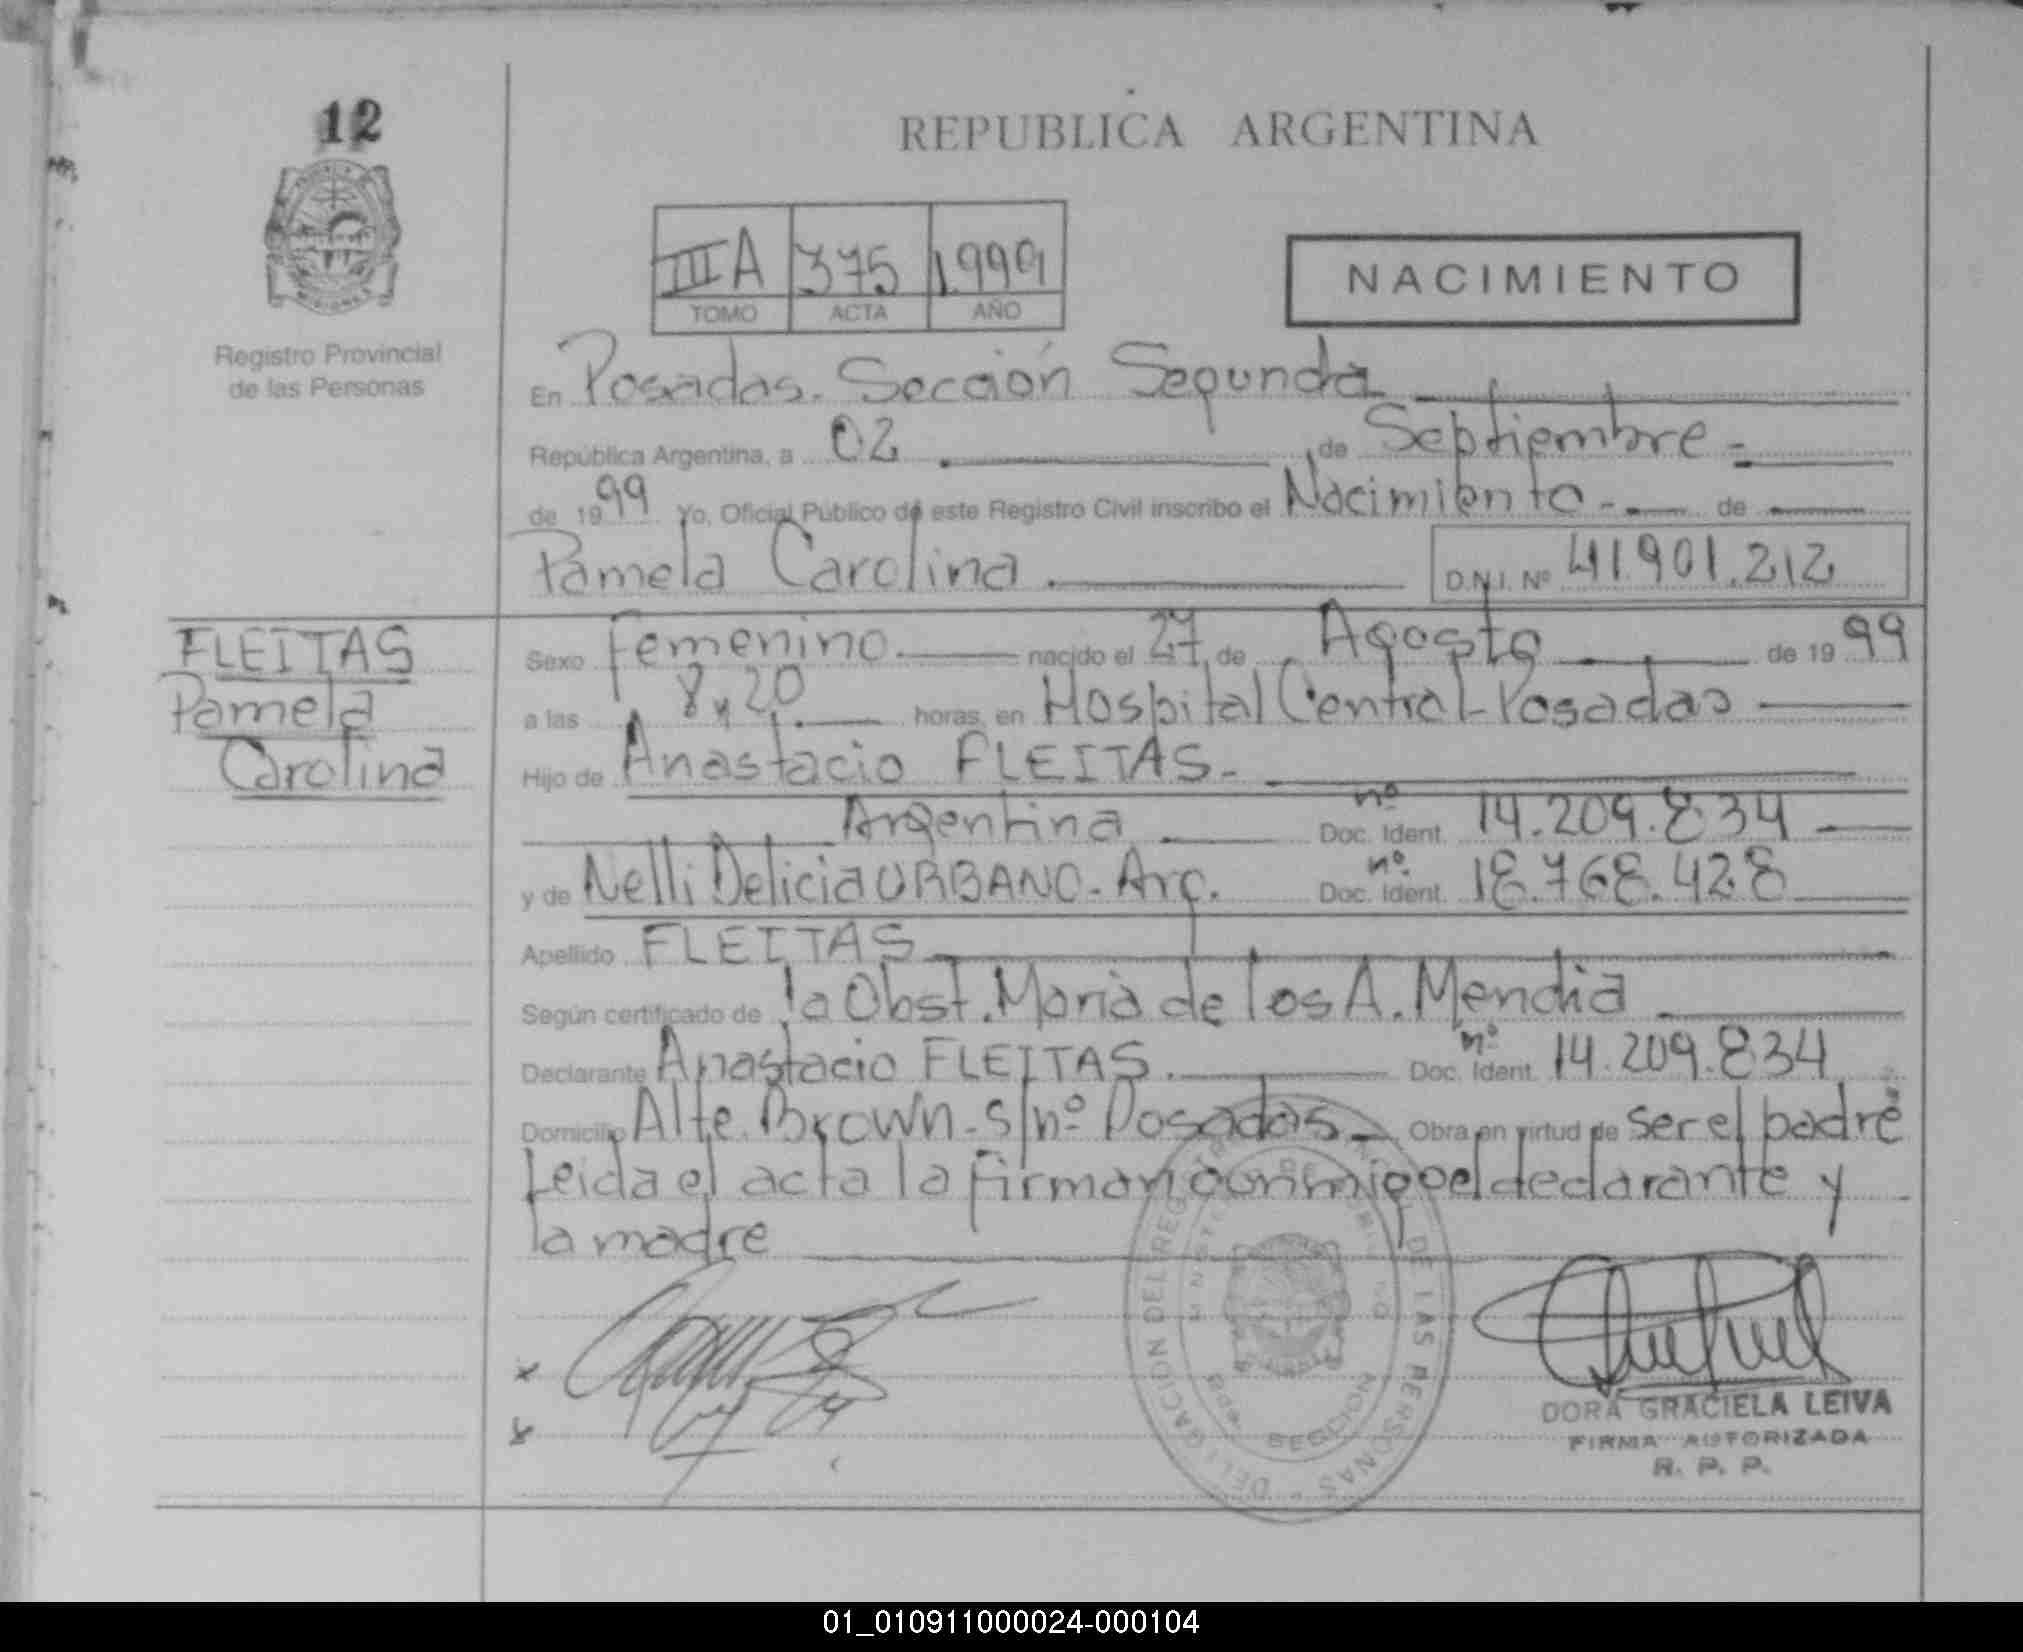 12
REPUBLICA ARGENTINA
MISIONES
Registro Provincial
de las Personas
III A 375 1.999
TOMO ACTA AÑO
NACIMIENTO
En Posadas. Sección Segunda
República Argentina, a 02 de Septiembre
de 1999 Yo, Oficial Público de este Registro Civil inscribo el Nacimiento de
Pamela Carolina. D.N.I. Nº 41.901.212
FLEITAS
Pamela
Carolina
Sexo femenino. nacido el 27 de Agosto de 1999
a las 8 y 20 horas, en Hospital Central-Posadas
Hijo de Anastacio FLEITAS.
Argentina Doc. Ident. nº 14.209.834
y de Nelli Delicia URBANO - Arg. Doc. Ident. nº 18.768.428
Apellido FLEITAS
Según certificado de la Obst. Maria de los A. Mendia
Declarante Anastacio FLEITAS. Doc. Ident. nº 14.209.834
Domicilio Alte. Brown - s/nº Posadas - Obra en virtud de ser el padre
Leida el acta la firman conmigo el declarante y
la madre
DELEGACION DEL REGISTRO DE LAS PERSONAS
SECCION
DORA GRACIELA LEIVA
FIRMA AUTORIZADA
R. P. P.
01_010911000024-000104